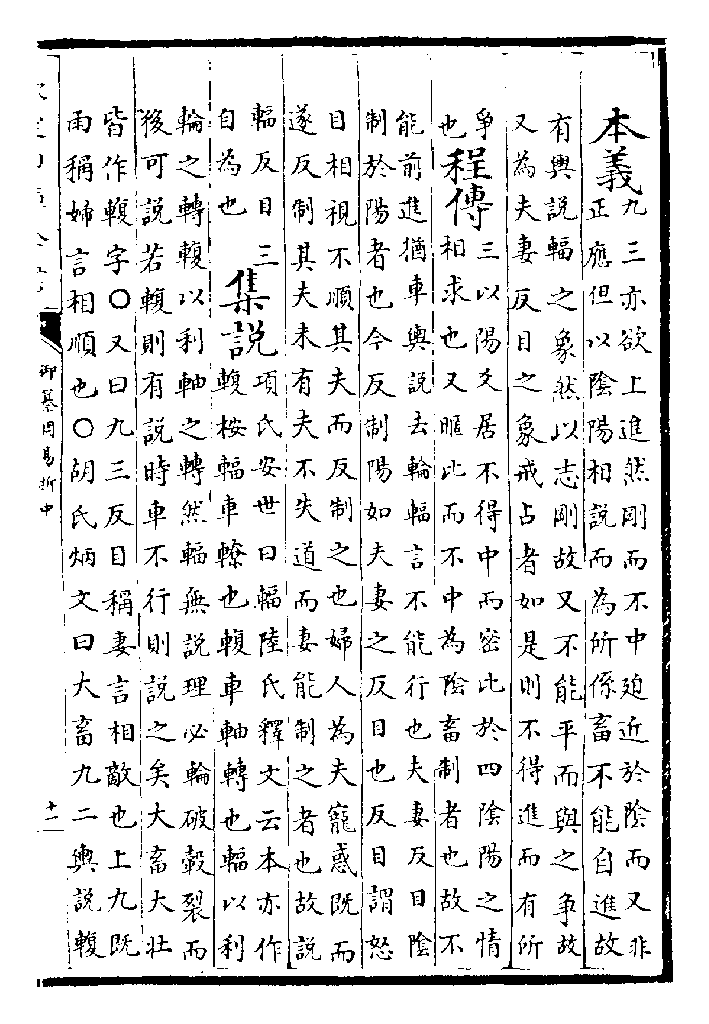 本義
九三亦欲上進然剛而不中廹近於陰而又非
正應但以陰陽相說而為所係畜不能自進故
有輿說輻之象然以志剛故又不能平而與之爭故
又為夫妻反目之象戒占者如是則不得進而有所
爭
也
程傳
三以陽爻居不得中而密比於四陰陽之情
相求也又暱比而不中為陰畜制者也故不
能前進猶車輿說去輪輻言不能行也夫妻反目陰
制於陽者也今反制陽如夫妻之反目也反目謂怒
目相視不順其夫而反制之也婦人為夫寵惑既而
遂反制其夫未有夫不失道而妻能制之者也故說
輻反目三
自為也
集說
項氏安世曰輻陸氏釋文云本亦作
輹按輻車轑也輹車軸轉也輻以利
輪之轉輹以利軸之轉然輻無說理必輪破轂裂而
後可說若輹則有說時車不行則說之矣大畜大壯
皆作輹字〇又曰九三反目稱妻言相敵也上九既
雨稱婦言相順也〇胡氏炳文曰大畜九二輿說輹
御纂周易折中
十一